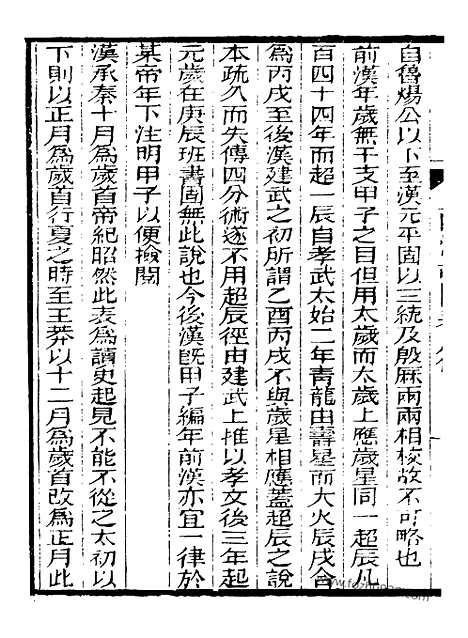 自魯煬公以下至漢元平固以三統及殷厤兩兩相校故不可略也
前漢年歲無干支甲子之目但用太歲而太歲上應歲星同一超辰凡
百四十四年而超一辰自孝武太始二年青龍由壽星而大火辰戌合
為丙戌至後漢建武之初所謂乙酉丙戌不與歲星相應蓋超辰之說
本疏久而失傳四分術遂不用超辰徑由建武上推以孝文後三年起
元歲在庚辰班書固無此說也今後漢旣甲子編年前漢亦宜一律於
某帝年下注明甲子以便撿閱
漢承秦十月為歲首帝紀昭然此表為讀史起見不能不從之太初以
下則以正月為歲首行夏之時至王莽以十二月為歲首改為正月此